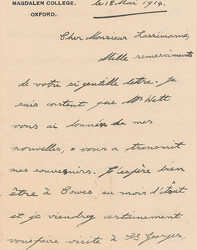 MAGDALEN COLLEGE,
OXFORD.
le 18 Mai 1914.
Cher Monsieur
Mille remerciments
de votre si gentille lettre. Je
suis content que Mr
vous ai donné de mes
nouvelles, & vous a transmit
mes souvenirs. J'espère bien
être à Cowes au mois d'Août
et je viendrai certainement
vous faire visite à St